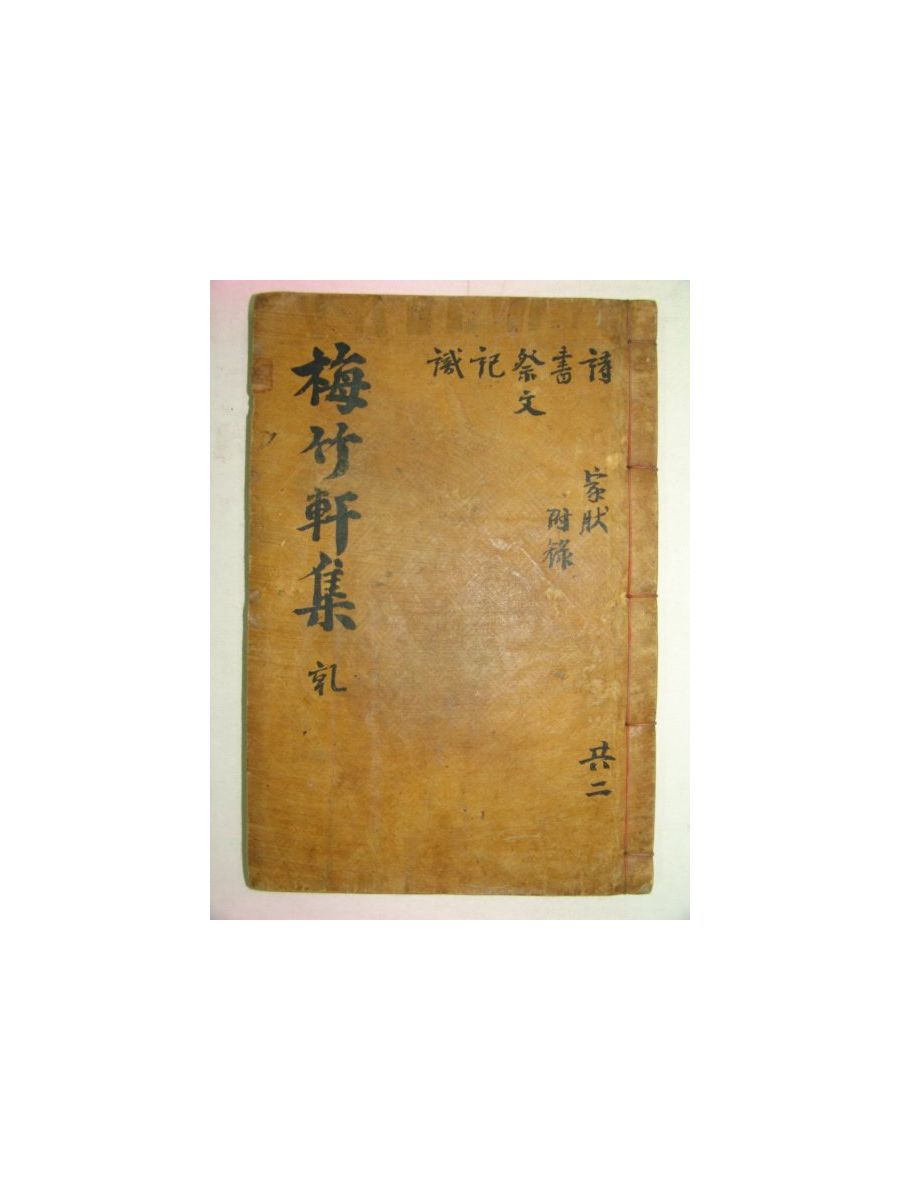 詩
書
祭文
記
識
家狀
附錄
共二
梅竹軒集 乹